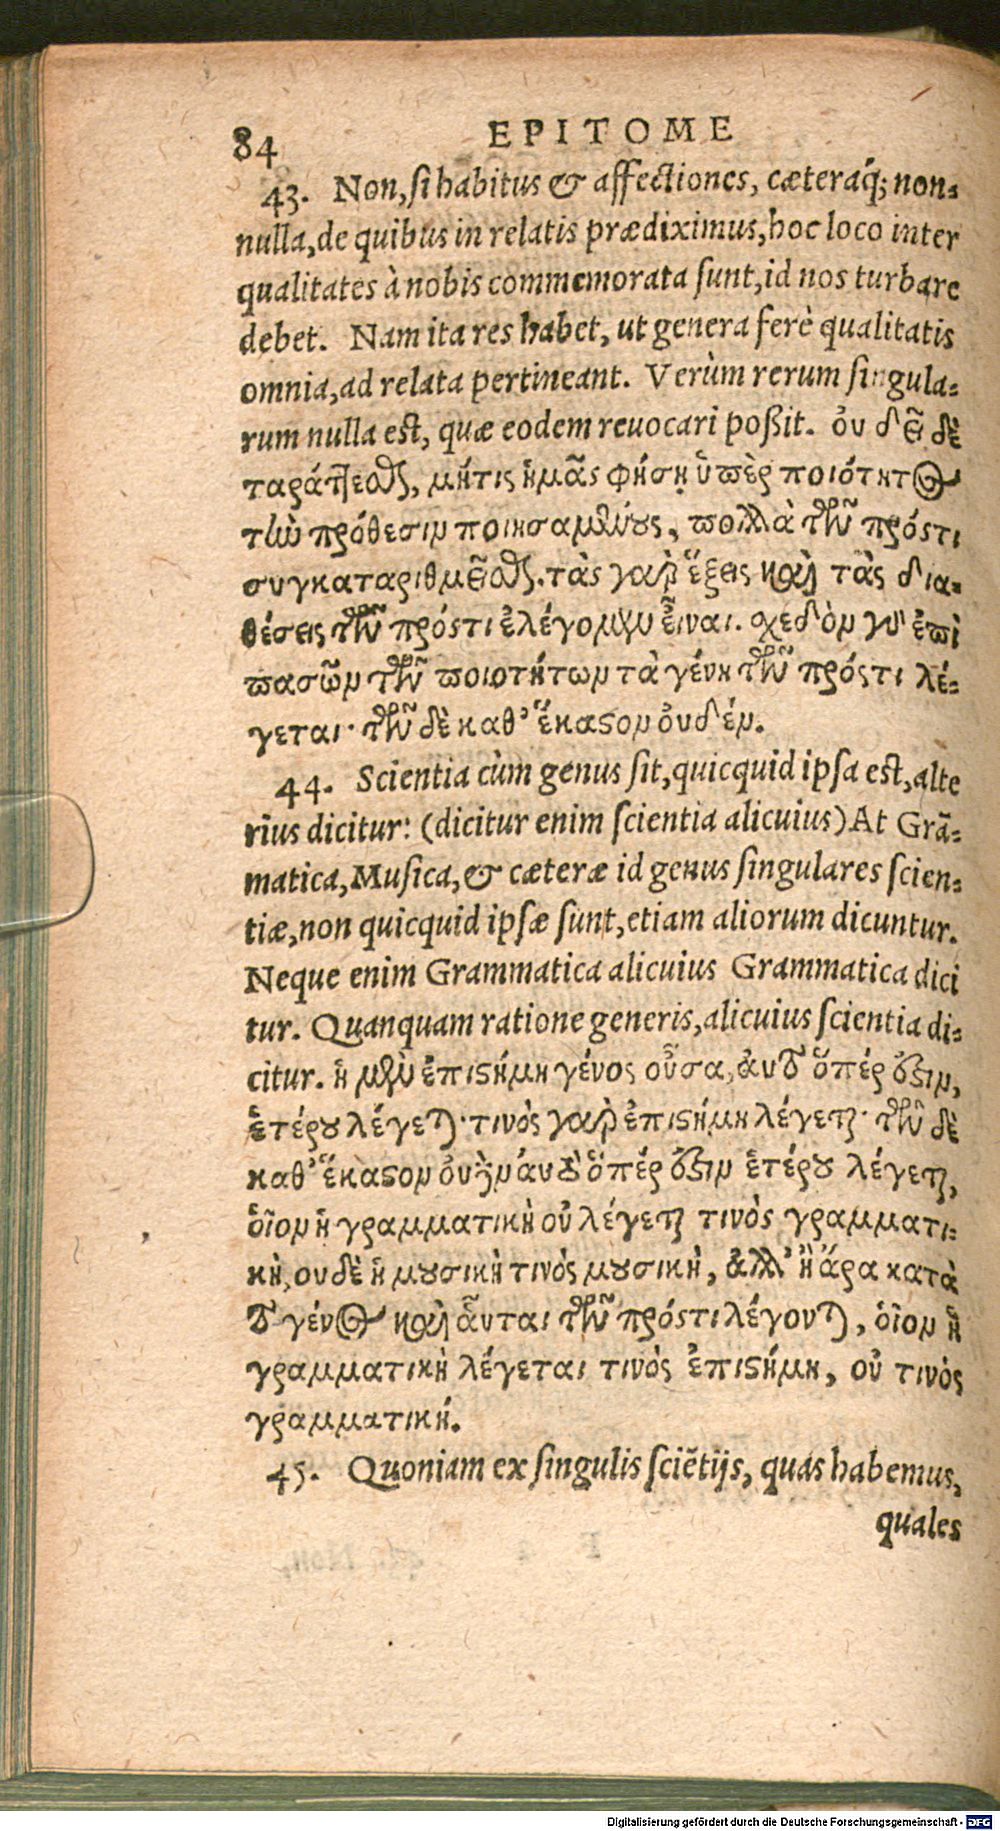 84 EPITOME
43. Non, si habitus & affectiones, cæteraq́; non-
nulla, de quibus in relatis prædiximus, hoc loco inter
qualitates à nobis commemorata sunt, id nos turbare
debet. Nam ita res habet, ut genera ferè qualitatis
omnia, ad relata pertineant. Verùm rerum singula-
rum nulla est, quæ eodem reuocari poßit. οὐ δεῖ δὲ
ταράττεσθαι, μήτις ἡμᾶς φήσῃ ὑπὲρ ποιότητος
τὴν πρόθεσιν ποιησαμένους, πολλὰ τῶν πρόστι
συγκαταριθμεῖσθαι. τὰς γὰρ ἕξεις καὶ τὰς δια-
θέσεις τῶν πρόστι ἐλέγομεν εἶναι. σχεδὸν γὰρ ἐπὶ
πασῶν τῶν ποιοτήτων τὰ γένη τῶν πρόστι λέ-
γεται· τῶν δὲ καθ’ ἕκαστον οὐδέν.
44. Scientia cùm genus sit, quicquid ipsa est, alte
rius dicitur: (dicitur enim scientia alicuius) At Grā-
matica, Musica, & cæteræ id genus singulares scien-
tiæ, non quicquid ipsæ sunt, etiam aliorum dicuntur.
Neque enim Grammatica alicuius Grammatica dici
tur. Quanquam ratione generis, alicuius scientia di-
citur. ἡ μὲν ἐπιστήμη γένος οὖσα, αὐτὸ ὅπέρ ἐστιν,
ἑτέρου λέγεται· τινὸς γὰρ ἐπιστήμη λέγεται· τῶν δὲ
καθ’ ἕκαστον οὐδὲν αὐτὸ ὅπέρ ἐστιν ἑτέρου λέγεται,
οἷον ἡ γραμματικὴ οὐ λέγεται τινὸς γραμματι-
κὴ, ουδὲ ἡ μουσικὴ τινὸς μουσικὴ, ἀλλ’ ἢ ἄρα κατὰ
τὸ γένος καὶ αὗται τῶν πρόστι λέγονται, οἷον ἡ
γραμματικὴ λέγεται τινὸς ἐπιστήμη, οὐ τινὸς
γραμματική.
45. Quoniam ex singulis sciētijs, quas habemus,
quales
Digitalisierung gefördert durch die Deutsche Forschungsgemeinschaft - DFG